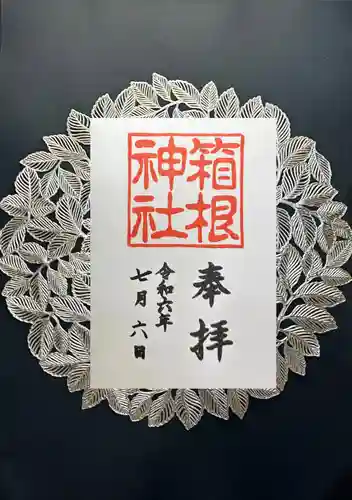 箱根
神社
奉拝
令和六年
七月六日